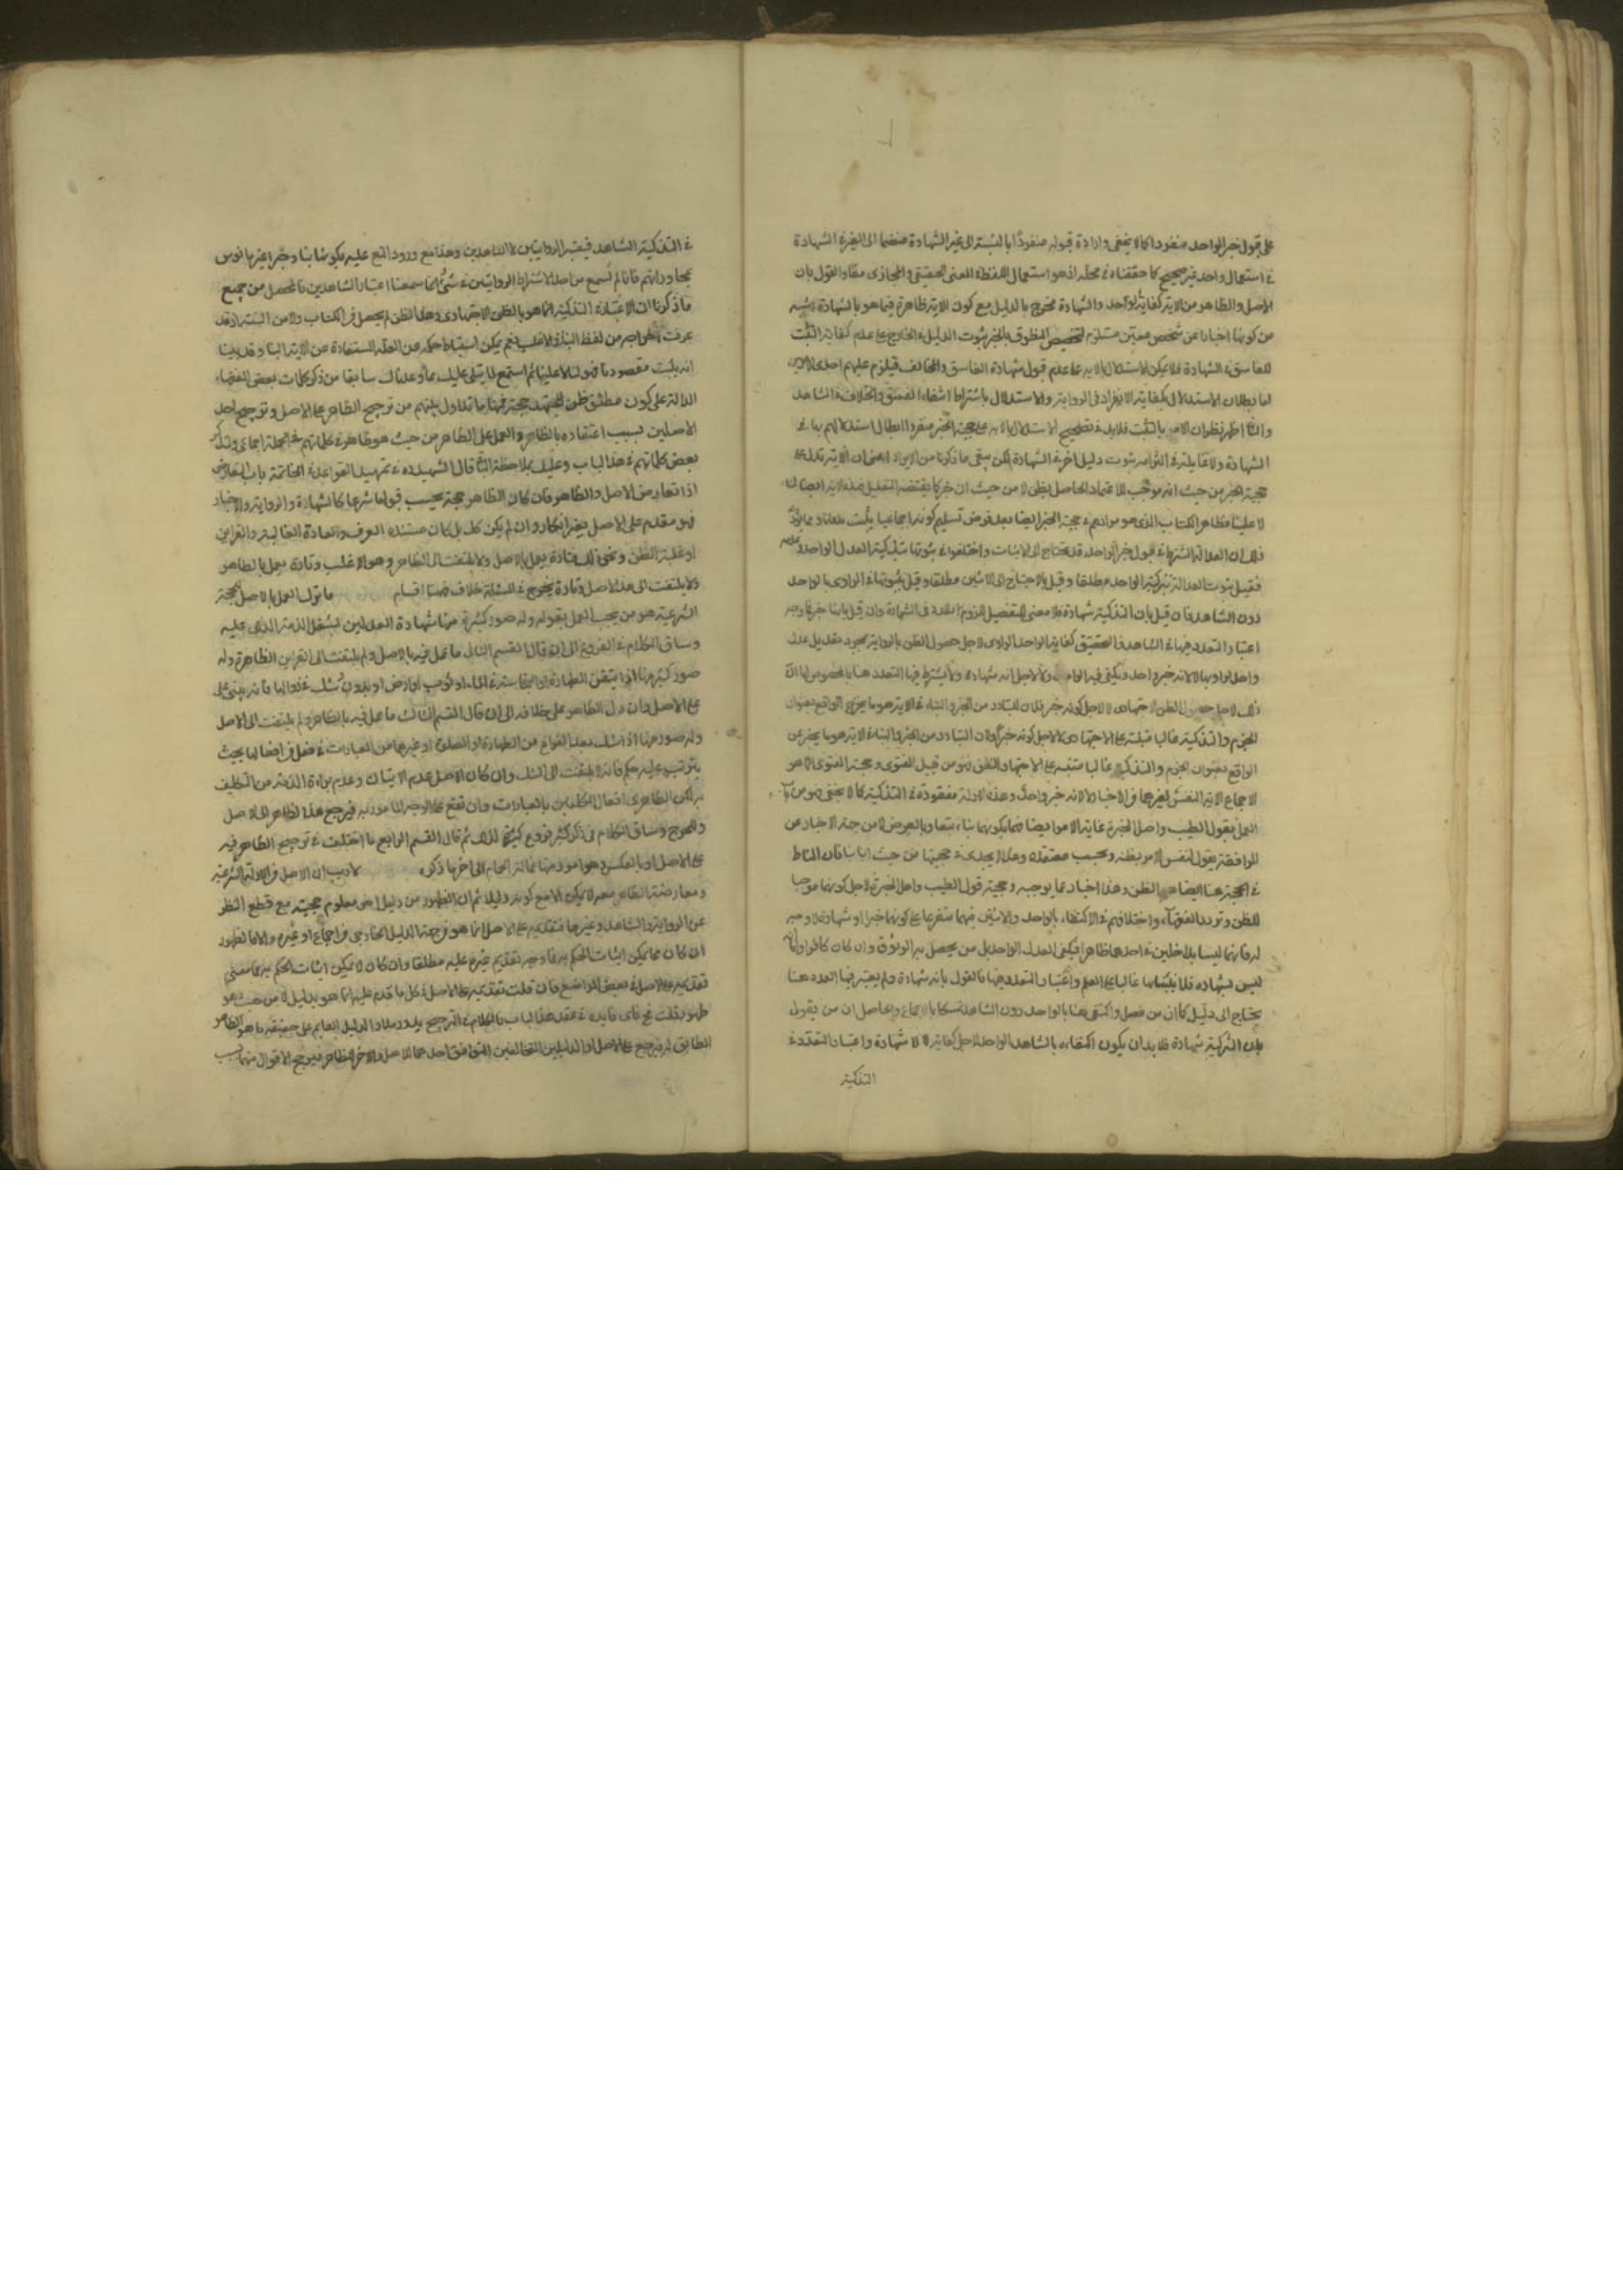 على قبول خبر الواحد منفردا كما لا يخفى وارادة قبوله منفردًا بالنسبة الى غير الشهادة منضما الى الغير في الشهادة
في استعمال واحد غير صحيح كما حققناه في محله اذ هو استعمال اللفظ في المعنى الحقيقي والمجازى معًا والقول بان
الاصل والظاهر من الاية كفاية الواحد والشهادة مخرج بالدليل مع كون الاية ظاهرة فيما هو بالشهادة اشبه
من كونها اخبارا عن شخص معين مستلزم لتخصيص المنطوق بالخبر ثبوت الدليل في الخارج على عدم كفاية التثبت
للفاسق في الشهادة فلا يمكن الاستدلال بالاية على عدم قبول شهادة الفاسق والمخالف فيلزم عليهم احدى الامرين
اما بطلان الاستدلال بكفاية الانفراد في الرواية والاستدلال باشتراط انتفاء الفسق والخلاف في الشاهد
والثا اظهر نظرا الى الامر بالتثبت فلابد في تصحيح الاستدلال بالاية على حجية الخبر منفردا ابطال استدلالهم بها في
الشهادة ولا غايلة في التزام ثبوت دليل اخر في الشهادة لكن يبقى ما ذكرنا من الايراد اعنى ان الاية تدل على
حجية الخبر من حيث انه موجب للاعتماد الحاصل بظن لا من حيث ان خبر كما يقتضيه التعليل فهذه الاية ايضا لنا
لا علينا فظاهر الكتاب الذي هو مرادهم في حجية الخبر ايضا بعد فرض تسليم كونه اجماعيا يثبت مدعانا ومما يؤيد
ذلك ان العدالة المشترطة في قبول خبر الواحد قد يحتاج الى الاثبات واختلفوا في ثبوتها بتذكية العدل الواحد وعدمه
فقيل بثبوت العدالة بتزكية الواحد مطلقا وقيل بالاحتياج الى الاثنين مطلقا وقيل بثبوتها في الراوى بالواحد
دون الشاهد فان قيل بان التذكية شهادة فلا معنى للتفصيل للزوم التعدد في الشهادة وان قيل بانها خبر فلا وجه
اعتبار التعدد فيها في الشاهد فالتحقيق كفاية الواحد في الراوى لاجل حصول الظن بالرواية بمجرد تعديل عدل
واحد لراويها لا لانه خبر واحد ويكفي فيه الواحد ولا لاجل انه شهادة ولا يشترط فيها التعدد هنا بالخصوص اما ان
ذلك لاجل حصول الظن الاجتهادى لا لاجل كونه خبر فلان المتبادر من الخبر والنباء في الاية هو ما يخرج الواقع بعنوان
الجزم والتذكية غالبا مبتنية على الاجتهادى لا لاجل كونه خبرًا ولان المتبادر من الخبر والنباء في الاية هو ما يخبر عن
الواقع بعنوان الجزم والتذكية غالبا مبتنية على الاجتهاد والظن فهو من قبيل الفتوى وحجية الفتوى انما هو
الاجماع الاية النفس لغيرها في الاخبار لا لانه خبر واحد وهذه الادلة مفقودة في التذكية كما لا يخفى فهو من باب
العمل بقول الطبيب واهل الخبرة غاية الامر ايضا فيما يكونهما بناء بتعا وبالعرض لا من جهة الاخبار عن
الموافقة بقول لنفس الامر بظنه وبحسب معتقده وهذا لا يجدى في حجيتها من حيث انها نبا فان المناط
في الحجية هنا ايضا هو الظن وهذا اخبار بما يوجبه وحجية قول الطبيب واهل الخبرة لاجل كونهما موجبا
للظن وتردد الفقهاء واختلافهم في الاكتفاء بالواحد والاثنين فيهما متفرعا على كونهما خبرا او شهادة لا وجه
له فانهما ليسا بداخلين في احدهما ظاهرا فيكفى العدل الواحد بل من يحصل به الوثوق وان كان كافرا واما
ليس بشهادة فلا بتنائها غالبا على العلم واعتبار التعدد فيها فالقول بانه شهادة ولم يعتبر فيها العدد هنا
يحتاج الى دليل كما ان من فصل واكتفى هنا بالواحد دون الشاهد تمسكا بالاجماع والحاصل ان من يقول
بان التزكية شهادة فلا بد ان يكون اكتفاءه بالشاهد الواحد لاجل كفاية لا لا شهادة واعتبار التعدد في
التذكية
في التذكية الشاهد فيعتبر الروايتين لا الشاهدين وهذا مع ورود المنع عليه بكونها نبا وخبرا غيرمانوس
بمحاوراتهم فانا لم نسمع من احد الاشتراط الروايتين في شئ انما سمعنا اعتبار الشاهدين فالمحصل من جميع
ما ذكرنا ان الاعتبار في التذكية انما هو بالظن الاجتهادى وهذا الظن لم يحصل من الكتاب ولا من السنة اذ قد
عرفت خواجه من لفظ النبا في الاغلب فنعم يمكن استنباط حكمه من العلة المستفادة عن الاية البنا وقد بينا
انه يثبت مقصودنا فهو لنا لا علينا ثم استمع لما يتلى عليك مما وعدناك سابقا من ذكر كلمات بعض الفقهاء
الدالة على كون مطلق ظن المجتهد حجة فمنها ما تداول بينهم من ترجيح الظاهر على الاصل وترجيح احد
الاصلين بسبب اعتضاده بالظاهر والعمل على الظاهر من حيث هو ظاهر في كلماتهم في الجملة اجماعى ولنذكر
بعض كلماتهم في هذا الباب وعليك بملاحظة الباقي قال الشهيد ره في تمهيد القواعد في الخاتمة باب التعارض
اذا تعارض الاصل والظاهر فان كان الظاهر حجة يجب قبولها شرعا كالشهادة والرواية والاخبار
فهو مقدم على الاصل بغير انكار وان لم يكن كك بل كان مستنده العرف والعادة الغالبة والقراين
او غلبة الظن ونحو ذلك فتارة يعمل بالاصل ولا يلتفت الى الظاهر وهو الاغلب وتارة يعمل بالظاهر
ولا يلتفت الى هذا الاصل وتارة يخرج في المسئلة خلاف فهنا اقسام ما ترك العمل بالاصل للحجة
الشرعية هو من يجب العمل بقوله وله صور كثيرة منها شهادة العدلين بشغل الذمة المدعى عليه
وساق الكلام في الفروع الى ان قال القسم الثانى ما عمل فيه بالاصل ولم يلتفت الى القراين الظاهرة وله
صور كثيرة منها اذا تيقن الطهارة او النجاسة في الماء او ثوب او ارض او بدون شك في زوالها فانه يبنى على
على الاصل وان دل الظاهر على خلافه الى ان قال القسم الثالث ما عمل فيه بالظاهر ولم يلتفت الى الاصل
وله صور منها اذا شك بعد الفراغ من الطهارة او الصلوة او غيرهما من العبادات في فعل من افعالها بحيث
يترتب عليه حكم فانه لا يلتفت الى الشك وان كان الاصل عدم الاتيان وعدم براءة الذمة من التكليف
به لكن الظاهر من افعال المكلفين بالعبادات وان تقع على الوجه المامور به فيرجح هذا الظاهر على الاصل
والحرج وساق الكلام في ذكر كثير فروع كثيرة لذلك ثم قال القسم الرابع ما اختلف في ترجيح الظاهر فيه
على الاصل او بالعكس وهو امور منها غسالة الحمام الى اخر ما ذكره لا ريب ان الاصل من الادلة الشرعية
ومعارضة الظاهر معه لا يمكن الا مع كونه دليلا ثم ان الظهور من دليل اخر معلوم حجيته مع قطع النظر
عن الرواية والشاهد وغيرها فتقديمه على الاصل انما هو من جهة الدليل الخارجى من اجماع او غيره والا فالظهور
ان كان مما يمكن اثبات الحكم به فلا وجه لتقديم غيره عليه مطلقا وان كان لا يمكن اثبات الحكم به فما معنى
تقديمه على الاصل في بعض المواضع فان قلت تقديمه على الاصل في كل ما قدم عليه انما هو بدليل لا من حيث هو
ظهور قلت فح فاى فايدة في عقد هذا الباب فالكلام في الترجيح يدور مدار الدليل القايم على حقيقة ما هو الظاهر
المطابق له فيرجح على الاصل او الدليلين المتخالفين المتوافق احدهما للاصل والاخر للظاهر فيرجح الاقوال منهما